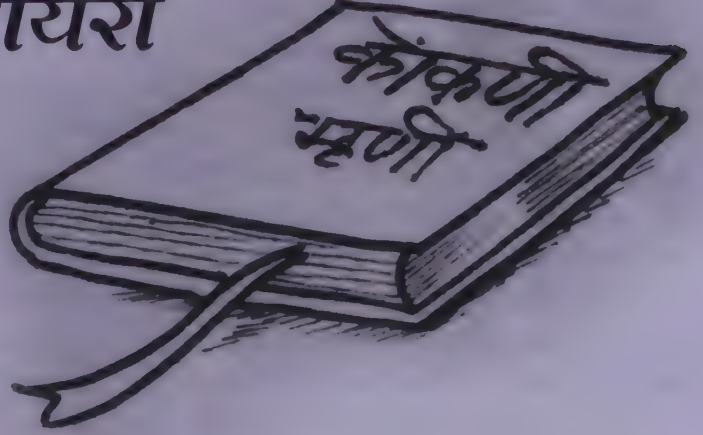 कोंकणी
म्हणी